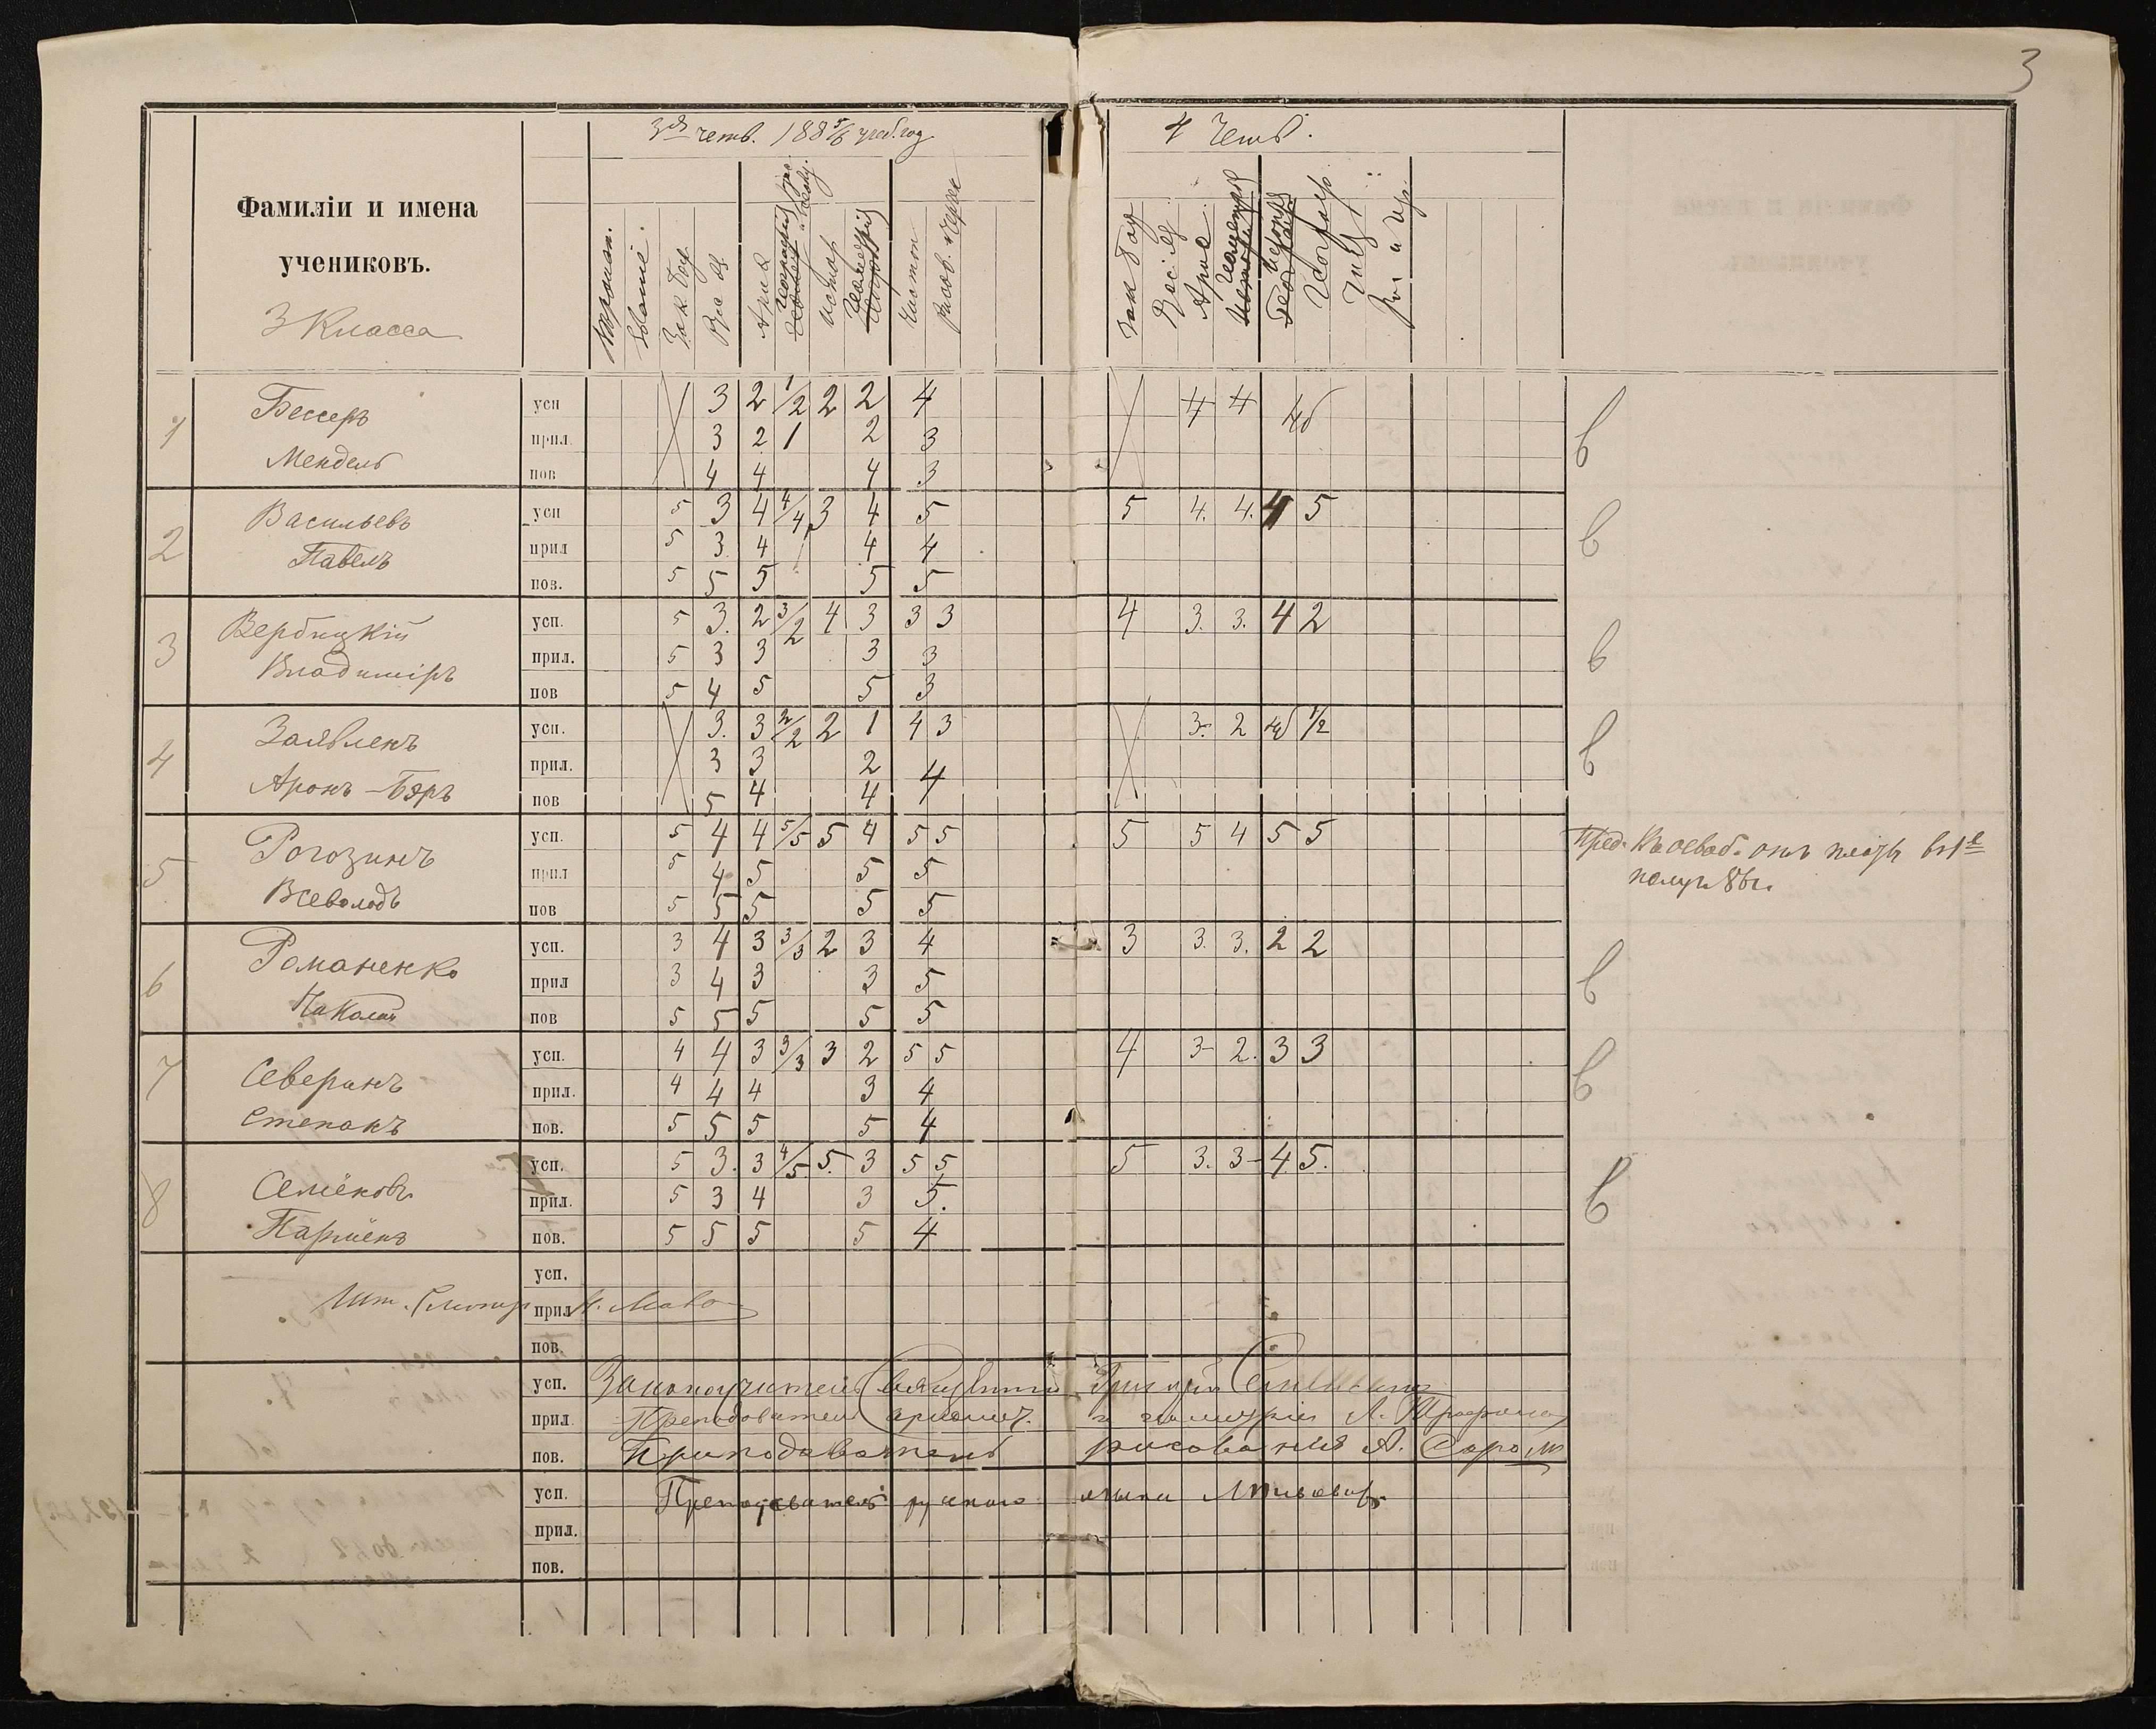 3
3я четв. 1885/6 учеб. год
4 Четв.
Фамиліи и имена
учениковъ.
3 Класса
Зак. Бож.
Ариѳ
Истор
Рисов. и Черч
Зак Бож
Ариѳ
Географ
1 Бессеръ усп 3 2 1/2 2 2 4 4 4 нб в
прил. 3 2 1 2 3
Мендель пов 4 4 4 3
2 Васильевъ усп 5 3 4 4/4 3 4 5 5 4. 4. 4 5 в
Павелъ прил 5 3. 4 4 4
пов. 5 5 5 5 5
3 Вербицкій усп. 5 3. 2 3/2 4 3 3 3 4 3. 3. 4 2 в
Владиміръ прил. 5 3 3 3 3
пов 5 4 5 5 3
4 Заявленъ усп. 3. 3 2/2 2 1 4 3 3- 2 нб 1/2 в
прил. 3 3 2 4
Аронъ-Бэръ пов 5 4 4
5 Рогозинъ усп. 5 4 4 5/5 5 4 5 5 5 5 4 5 5
прил 5 4 5 5 5
Всеволодъ пов 5 5 5 5 5
Пред. къ освоб. отъ платы въ 1е
полуг. 86 г.
6 Романенко усп. 3 4 3 3/3 2 3 4 3 3. 3. 2 2 в
прил 3 4 3 3 5
Николай пов 5 5 5 5 5
7 Северинъ усп. 4 4 3 3/3 3 2 5 5 4 3- 2. 3 3 в
прил. 4 4 4 3 4
Степанъ пов. 5 5 5 5 4
8 Семёновъ усп. 5 3. 3 4/5 5. 3 5 5 5 3. 3- 4. 5. в
прил. 5 3 4 3 5.
Парменъ пов. 5 5 5 5 4
усп.
Шт. Смотр прил
пов.
усп. Законоучитель Священникъ Григорій
прил. Преподаватель ариѳмет. и геометріи А.
пов. Преподаватель рисованія А.
усп. Преподаватель русскаго языка
прил.
пов.